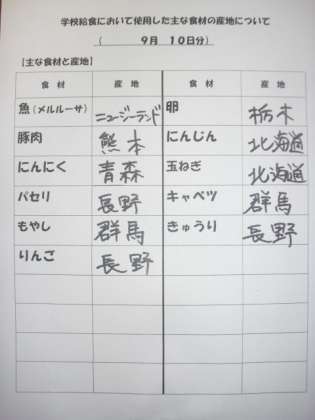 学校給食において使用した主な食材の産地について
( 9月 10日分)
【主な食材と産地】
食材 産地 食材 産地
魚(メルルーサ) ニュージーランド 卵 栃木
豚肉 熊本 にんじん 北海道
にんにく 青森 玉ねぎ 北海道
パセリ 長野 キャベツ 群馬
もやし 群馬 きゅうり 長野
りんご 長野